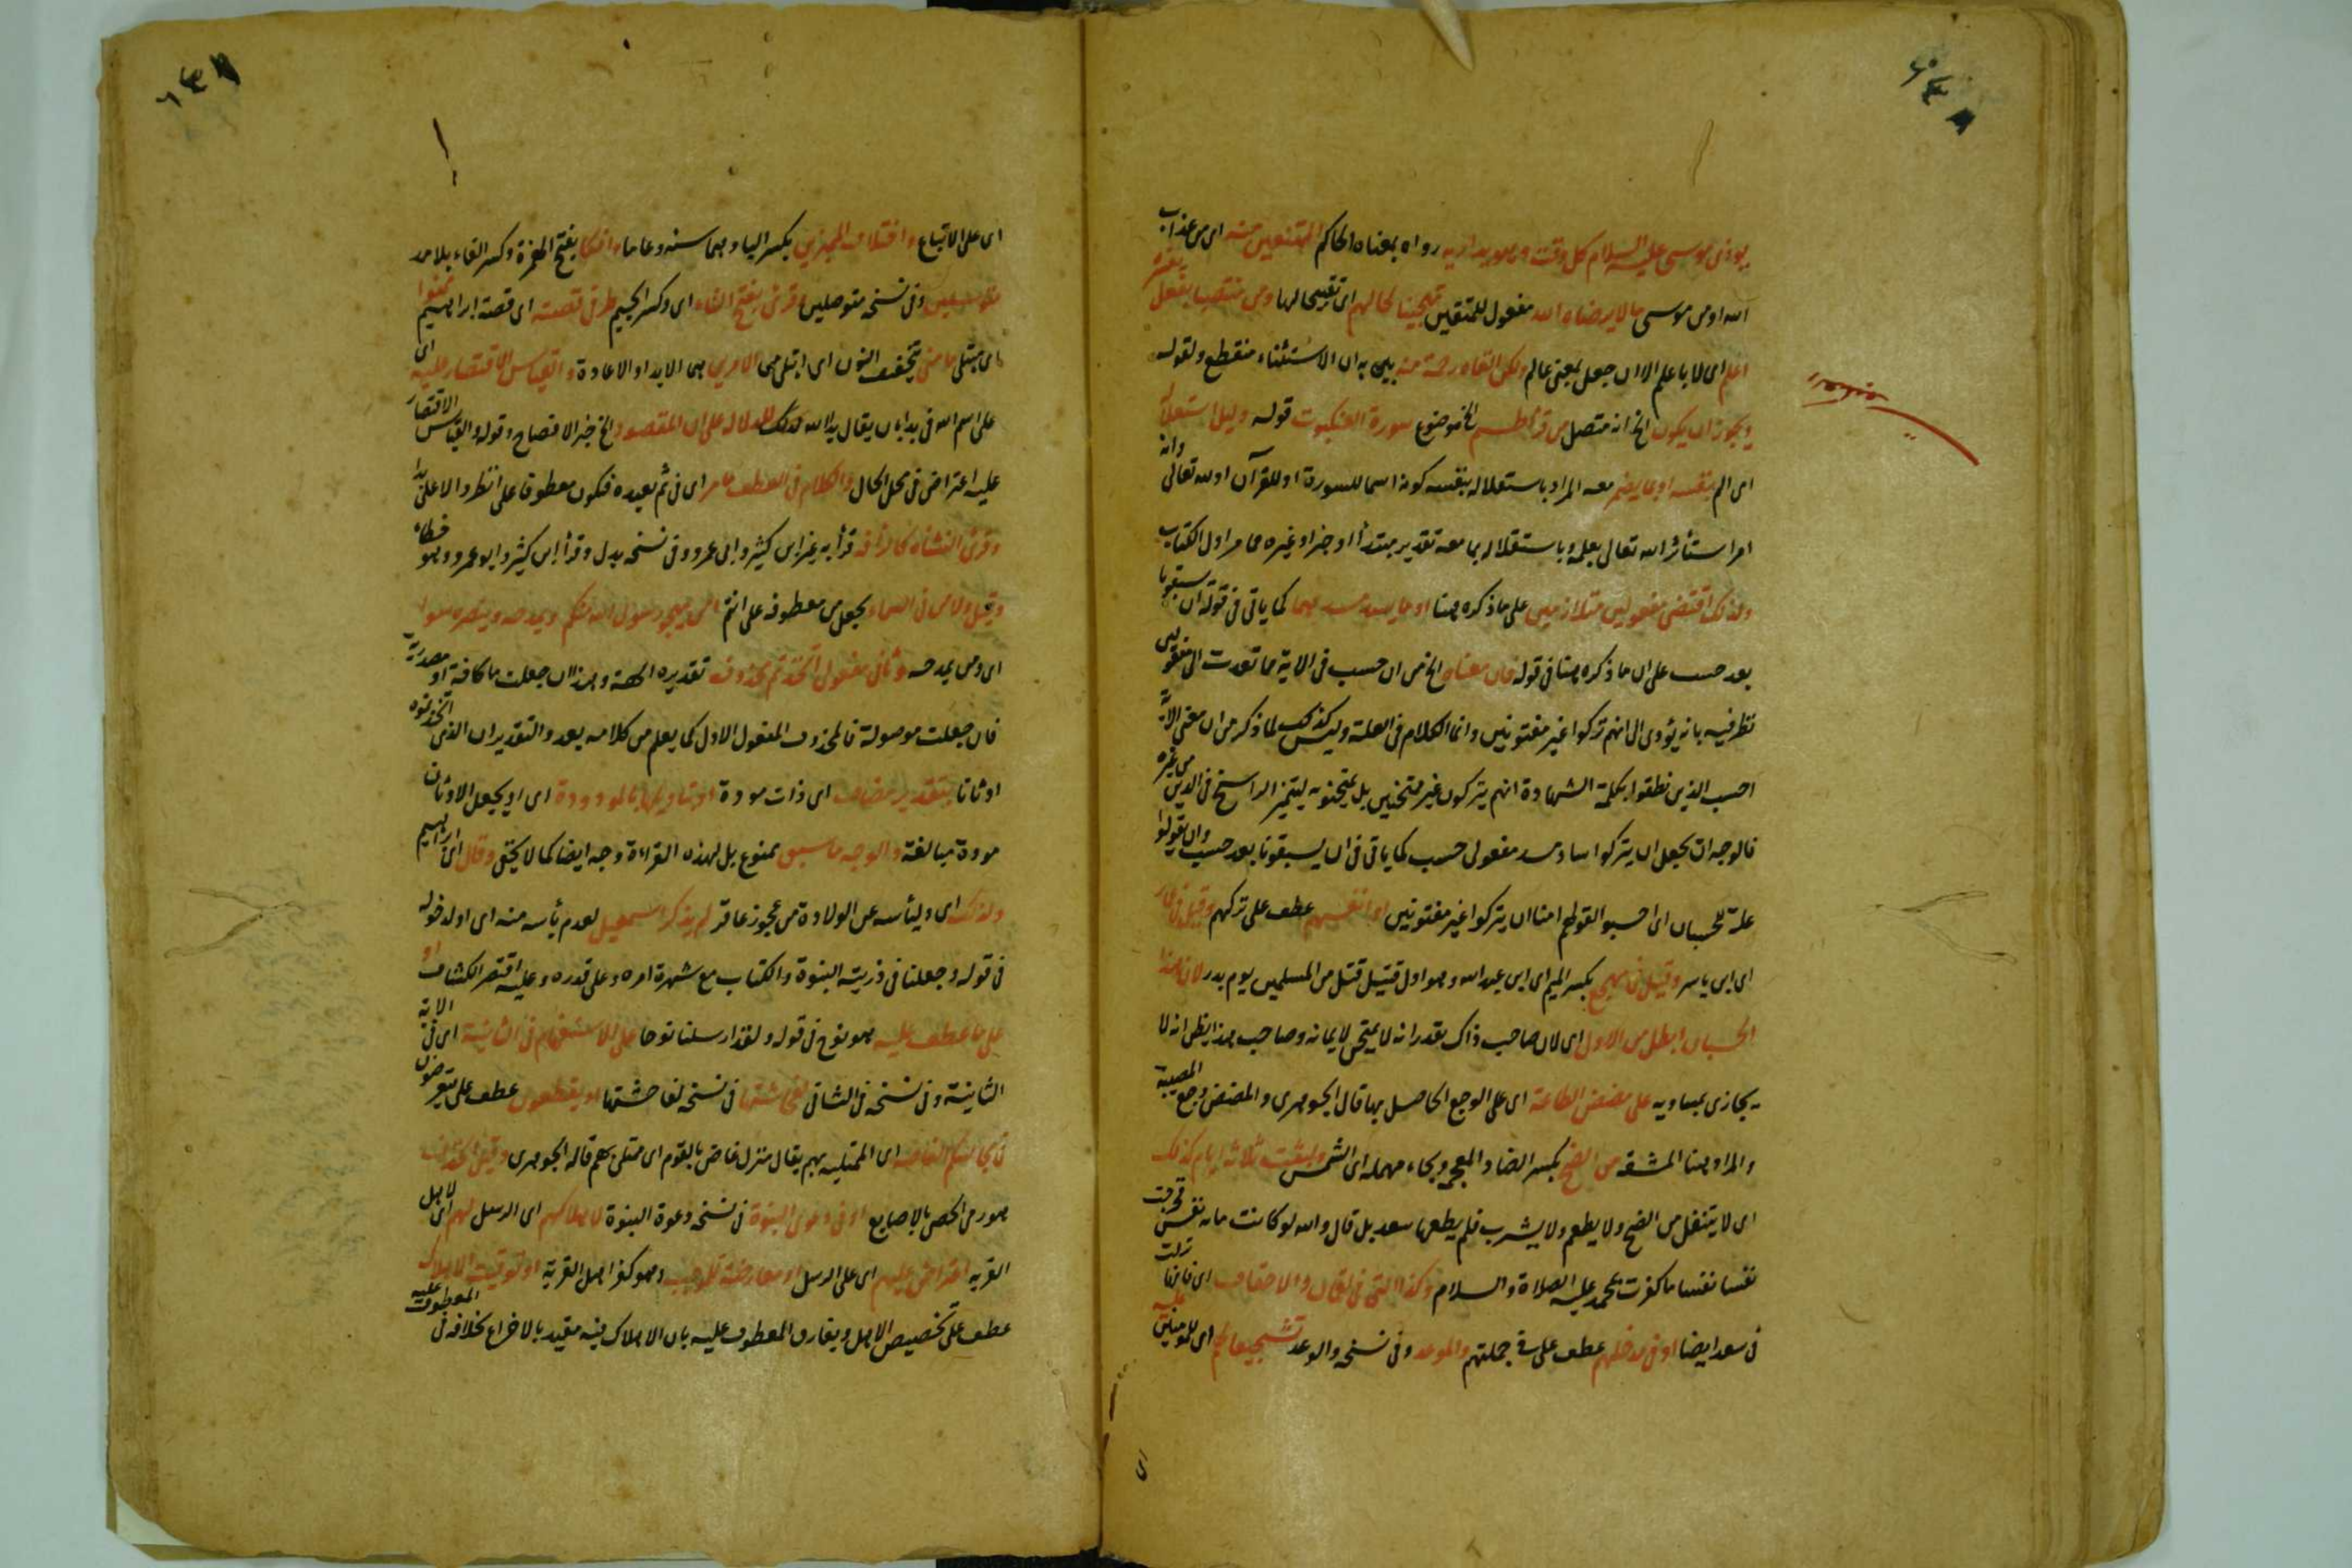 يوذى موسى عليه السلام كل وقت رواه بمعناه الحاكم الممتنعين منه اى من عذاب
الله او من موسى ما لا يرضاه الله مفعول للمتقين تهجينا لحالهم اى تقبيحا لها ومن منتصب بفعل
اعلم اى لا باعلم الا ان جعل بمعنى عالم ولكن القاه رحمة منه بين به ان الاستثناء منقطع ولقوله
ويجوز ان يكون الخ انه متصل من قرأ طسم الخ موضوع سورة العنكبوت قوله دليل استقلاله
اى الم بنفسه او بما يضمر معه المراد باستقلاله بنفسه كونه اسما للسورة او للقرآن او لله تعالى وانه
امر استأثر الله تعالى بعلمه وباستقلاله بما معه تقدير مبتدأ او خبر او غيره مما مر اول الكتاب
ولذلك اقتضى مفعولين متلازمين على ما ذكره هنا او ما يسد مسدهما كما ياتى فى قوله ان يسبقونا
بعد حسب على ان ما ذكره هنا فى قوله فان معناه الخ من ان حسب فى الاية مما تعدت الى مفعولين
نظر فيه بانه يؤدى الى انهم تركوا غير مفتونين وانما الكلام فى العلة وليس كذلك لما ذكر من ان معنى الاية
احسب الذين نطقوا بكلمة الشهادة انهم يتركون غير ممتحنين بل يمتحنون ليتميز الراسخ فى الدين من غيره
فالوجه ان يجعل ان يتركوا سادا مسد مفعولى حسب كما ياتى فى ان يسبقونا بعد حسب وان يقولوا
علة للحسبان اى احسبوا لقولهم امنا ان يتركوا غير مفتونين او انفسهم عطف على تركهم وقيل فى عمار
اى ابن ياسر وقيل فى مهجع بكسر الميم اى ابن عبد الله وهو اول قتيل قتل من المسلمين يوم بدر لان هذا
الحسبان ابطل من الاول اى لان صاحب ذاك يقدر انه لا يمتحن لايمانه وصاحب هذا يظن انه لا
يجازى بمساويه على مضض الطاعة اى على الوجع الحاصل بها قال الجوهرى والمضض وجع المصيبة
والمراد هنا المشقة من الضح بكسر الضاد المعجمة وبحاء مهملة اى الشمس ولبثت ثلاثة ايام كذلك
اى لا تنتقل من الضح ولا يطعم ولا يشرب فلم يطعها سعد بل قال والله لو كانت ماية نفس فخرجت
نفسا نفسا ما كفرت بمحمد عليه الصلاة والسلام وكذا التى فى لقمان والاحقاف اى فانها نزلت
فى سعد ايضا او فى مدخلهم عطف على فى جملتهم والموعد وفى نسخه والوعد تشجيعا لهم اى للمؤمنين
اى على الاتباع بكسر الياء وهما سنة وعاما وافكا بفتح الهمزة وكسر الفاء بلا مد
متوسلين وفى نسخه متوصلين وقرئ بفتح التاء اى وكسر الجيم طرفى قصته اى قصة ابراهيم
اى مبتلى مامنى بتخفيف النون اى ابتلى من الامرين هما الابداء والاعادة والقياس الاقتصار عليه اى
على اسم الله فى بدا بان يقال بدا الله للدلالة على ان المقصود الخ خبر الافصاح وقوله والقياس الاقتصار
عليه اعتراض فى محل الحال والكلام فى العطف ما مر اى فى ثم يعيده فيكون معطوفا على انظروا لا على بدا
وقرئ النشاة كالرأفة قرأ به غير ابن كثير وابى عمرو وفى نسخه بدل وقرأ ابن كثير وابو عمرو وهو خطاء
وقيل ولا من فى السماء بجعل من معطوفه على انتم امن يهجو رسول الله منكم ويمدحه وينصره سواء
اى ومن يمدحه وثانى مفعولى اتخذتم محذوف تقديره الهة وهذا ان جعلت ما كافة او مصدرية
فان جعلت موصولة فالمحذوف المفعول الاول كما يعلم من كلامه بعد والتقدير ان الذى اتخذتموه
اوثانا بتقدير مضاف اى ذات مودة او بتاويلها بالمودودة اى او يجعل الاوثان
مودة مبالغة والوجه ما سبق ممنوع بل لهذه القراءة وجه ايضا كما لا يخفى وقال اى ابراهيم
ولذلك اى وليأسه عن الولادة من عجوز عاقر لم يذكر اسمعيل لعدم يأسه منه اى او لدخوله
فى قوله وجعلنا فى ذريته النبوة والكتاب مع شهرة امره وعلى قدره وعليه اقتصر الكشاف او
على ما عطف عليه هو نوح فى قوله ولقد ارسلنا نوحا على الاستفهام فى الثانية اى فى الاية
الثانية وفى نسخه فى الثانى لفحاشتها فى نسخه لفاحشتها او يقطعون عطف على يتعرضون
فى مجالسكم الغاصة اى الممتلية بهم يقال منزل غاص بالقوم اى ممتلئ بهم قاله الجوهرى وقيل الحذف
هو رمى الحصى بالاصابع او فى دعوى النبوة فى نسخه دعوة النبوة لاهلاكهم اى الرسل لهم اى لاهل
القرية اعتراض عليهم اى على الرسل او معارضة للموجب وهو كفر اهل القرية او توقيت الاهلاك
عطف على تخصيص الاهل ويفارق المعطوف عليه بان الاهلاك فيه مقيد بالاخراج بخلافه فى المعطوف عليه